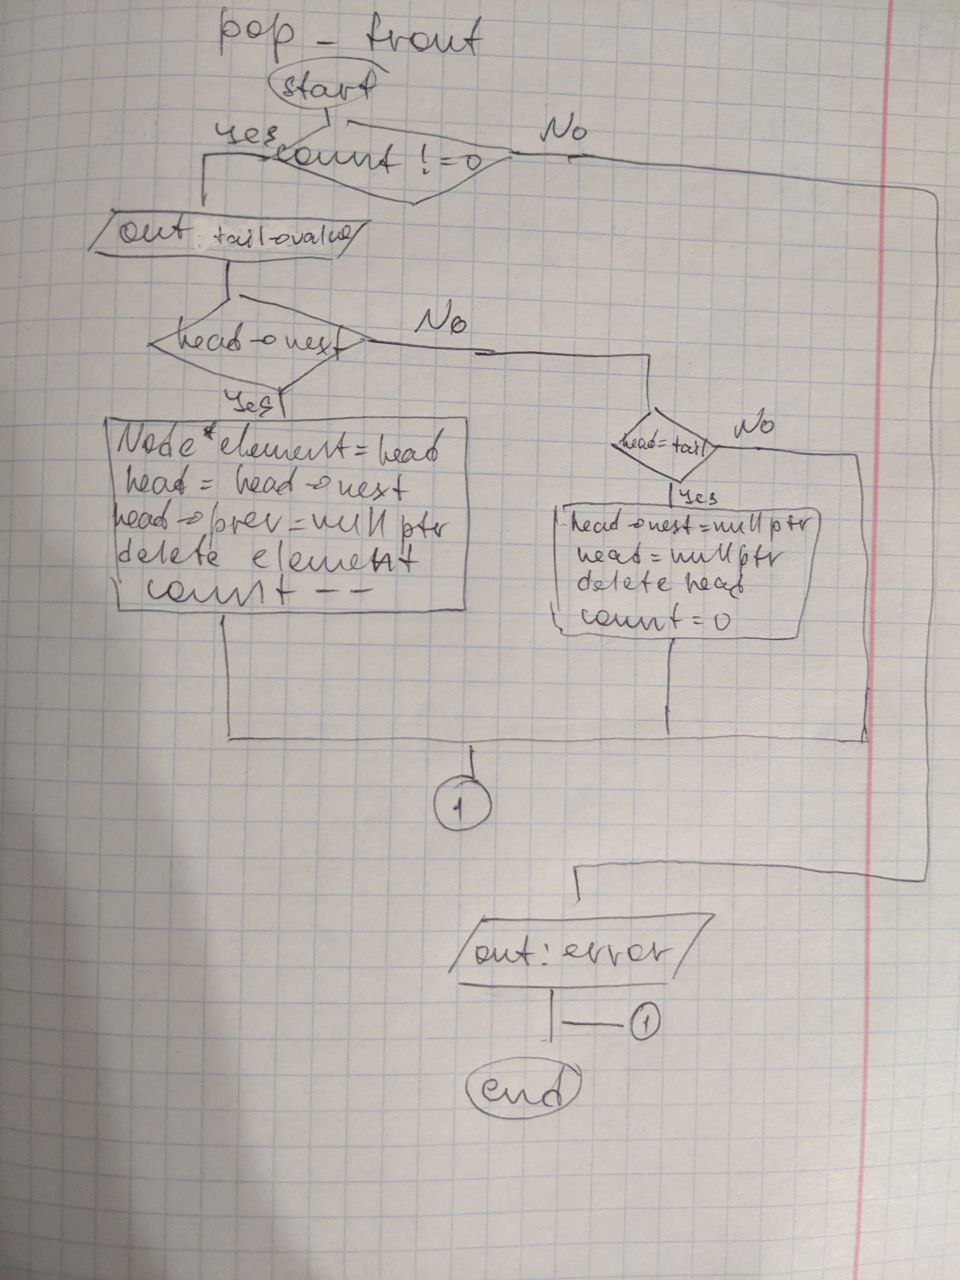 pop_front
start
yes
No
count != 0
out: tail->value
head->next
No
yes
Node* element = head
head = head->next
head->prev = nullptr
delete element
count --
head = tail
No
yes
head->next = nullptr
head = nullptr
delete head
count = 0
1
out: error
1
end